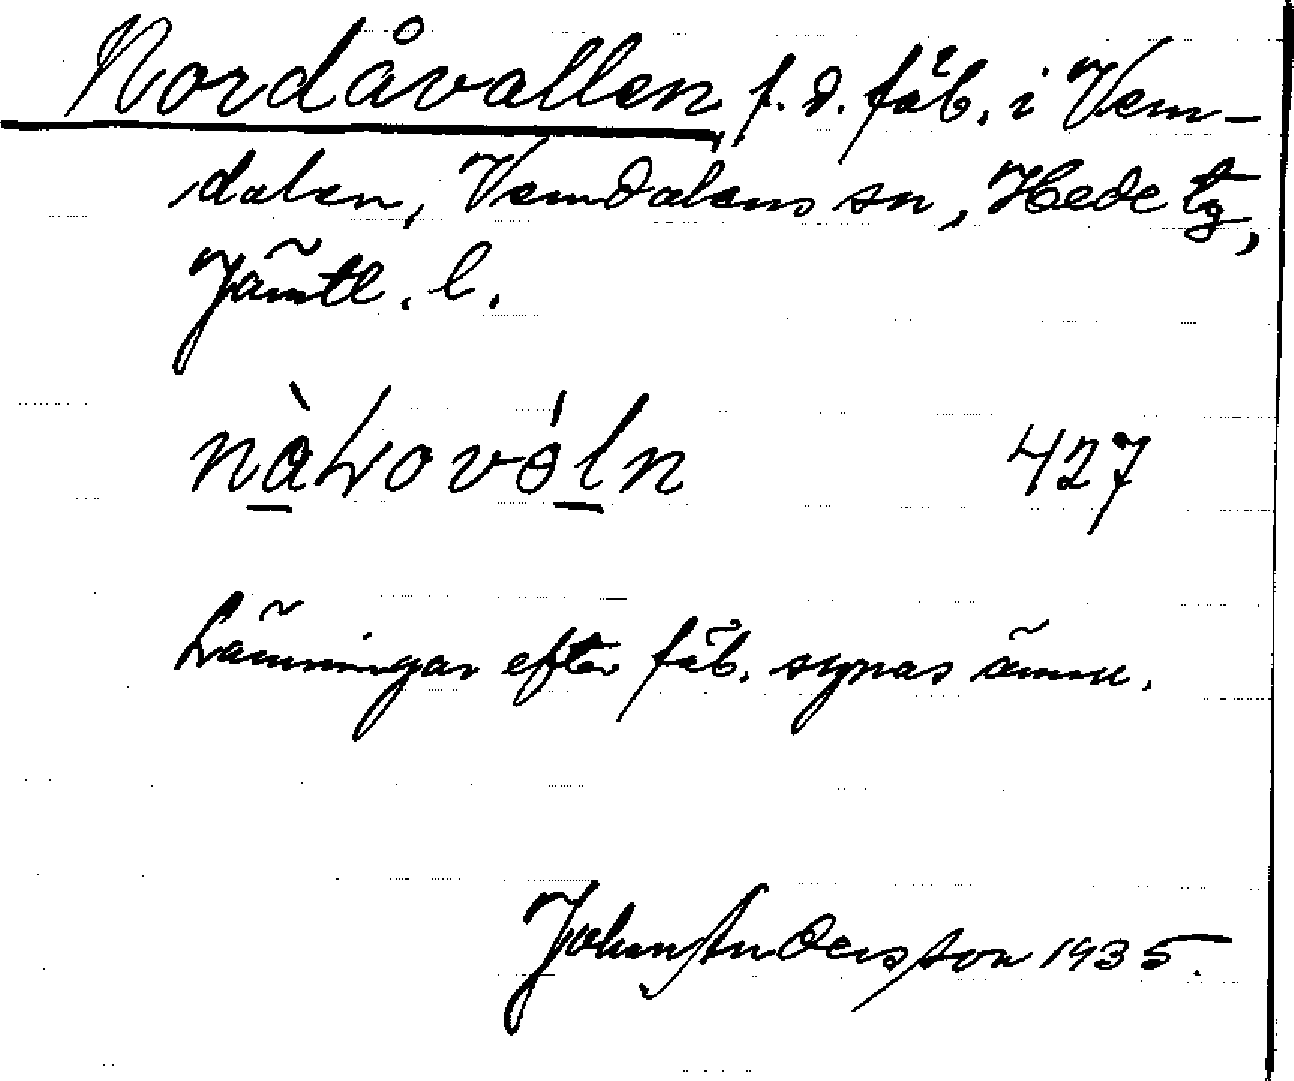 Nordåvallen, f. d. fäb. i Vem-
dalen, Vemdalens sn, Hede tg,
Jämtl. l.
427
Lämningar efter fäb. synas ännu.
John Andersson 1935.